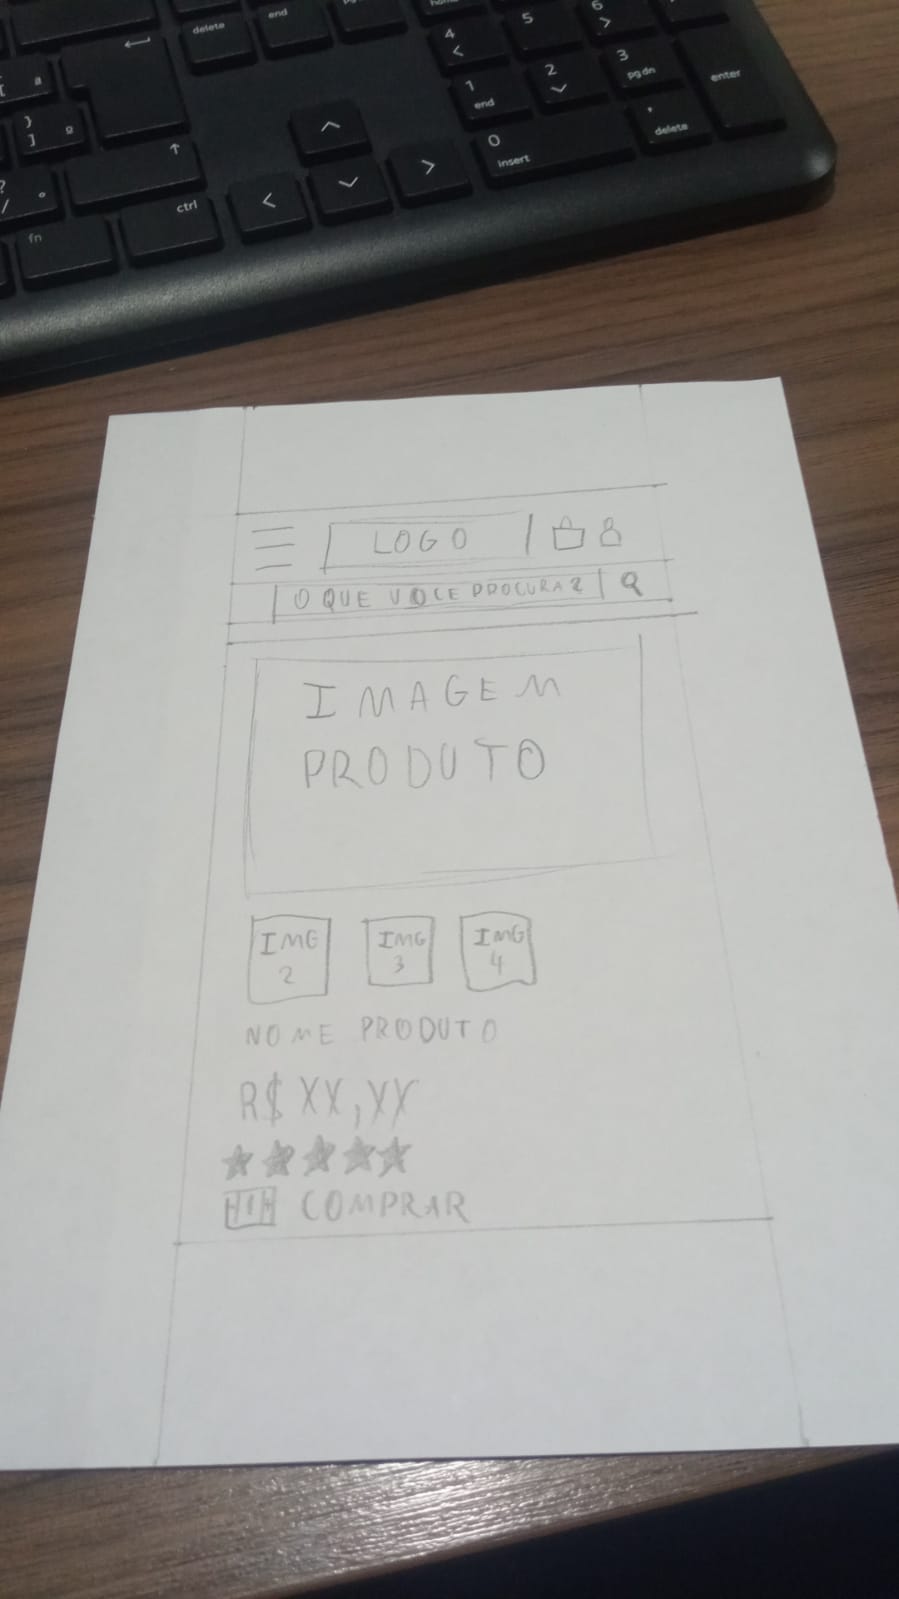 delete
end
4
5
6
1
end
2
3
pg dn
enter
0
insert
.
delete
ª
}
]
º
?
/
°
ctrl
fn
LOGO
O QUE VOCE PROCURA?
IMAGEM
PRODUTO
IMG
2
IMG
3
IMG
4
NOME PRODUTO
R$ XX,XX
COMPRAR